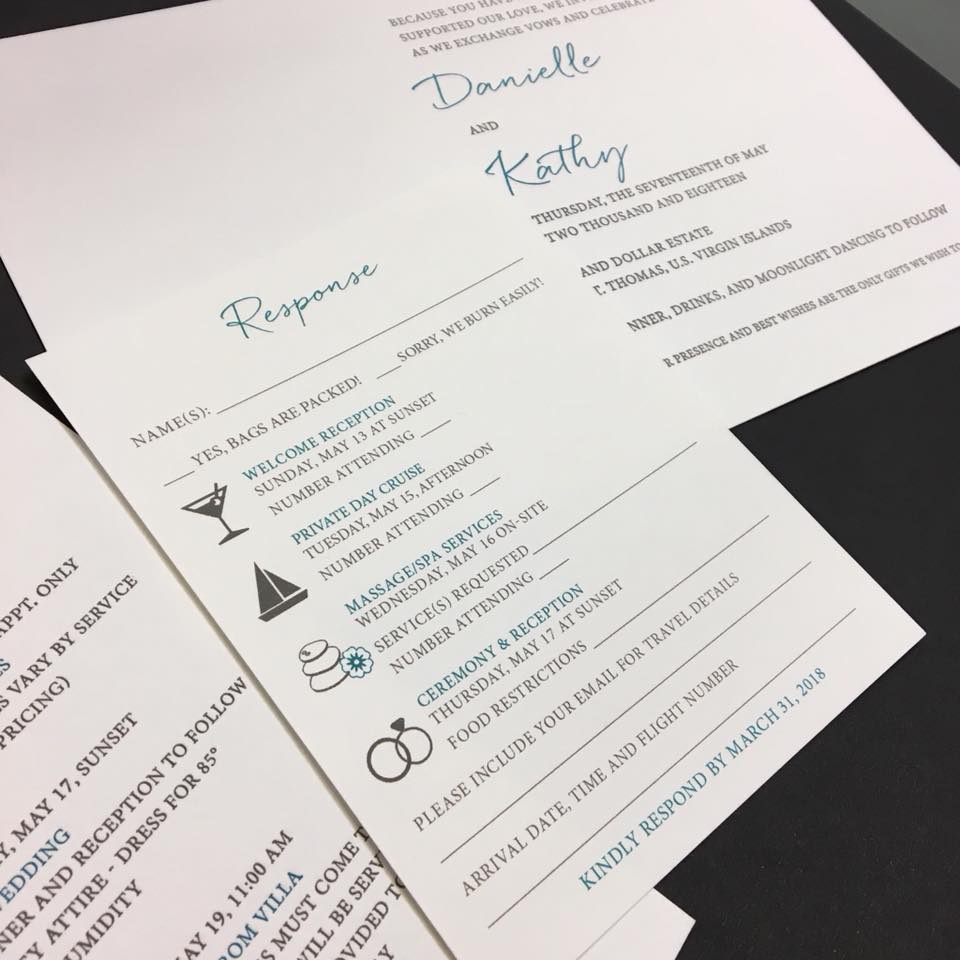 BECAUSE YOU HAVE
SUPPORTED OUR LOVE, WE
AS WE EXCHANGE VOWS AND CELEBRATE
Danielle
AND
Kathy
THURSDAY, THE SEVENTEENTH OF MAY
TWO THOUSAND AND EIGHTEEN
AND DOLLAR ESTATE
T. THOMAS, U.S. VIRGIN ISLANDS
NNER, DRINKS, AND MOONLIGHT DANCING TO FOLLOW
R PRESENCE AND BEST WISHES ARE THE ONLY GIFTS WE WISH TO
Response
NAME(S):
YES, BAGS ARE PACKED! SORRY, WE BURN EASILY!
WELCOME RECEPTION
SUNDAY, MAY 13 AT SUNSET
NUMBER ATTENDING
PRIVATE DAY CRUISE
TUESDAY, MAY 15, AFTERNOON
NUMBER ATTENDING
MASSAGE/SPA SERVICES
WEDNESDAY, MAY 16 ON-SITE
SERVICE(S) REQUESTED
NUMBER ATTENDING
CEREMONY & RECEPTION
THURSDAY, MAY 17 AT SUNSET
FOOD RESTRICTIONS
PLEASE INCLUDE YOUR EMAIL FOR TRAVEL DETAILS
ARRIVAL DATE, TIME AND FLIGHT NUMBER
KINDLY RESPOND BY MARCH 31, 2018
APPT. ONLY
S VARY BY SERVICE
PRICING)
Y, MAY 17, SUNSET
EDDING
NER AND RECEPTION TO FOLLOW
Y ATTIRE - DRESS FOR 85°
UMIDITY
AY 19, 11:00 AM
OM VILLA
S MUST COME T
WILL BE SERV
OVIDED TO